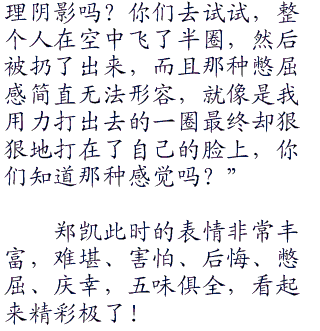 理阴影吗？你们去试试，整
个人在空中飞了半圈，然后
被扔了出来，而且那种憋屈
感简直无法形容，就像是我
用力打出去的一圈最终却狠
狠地打在了自己的脸上，你
们知道那种感觉吗？”
郑凯此时的表情非常丰
富，难堪、害怕、后悔、憋
屈、庆幸，五味俱全，看起
来精彩极了！